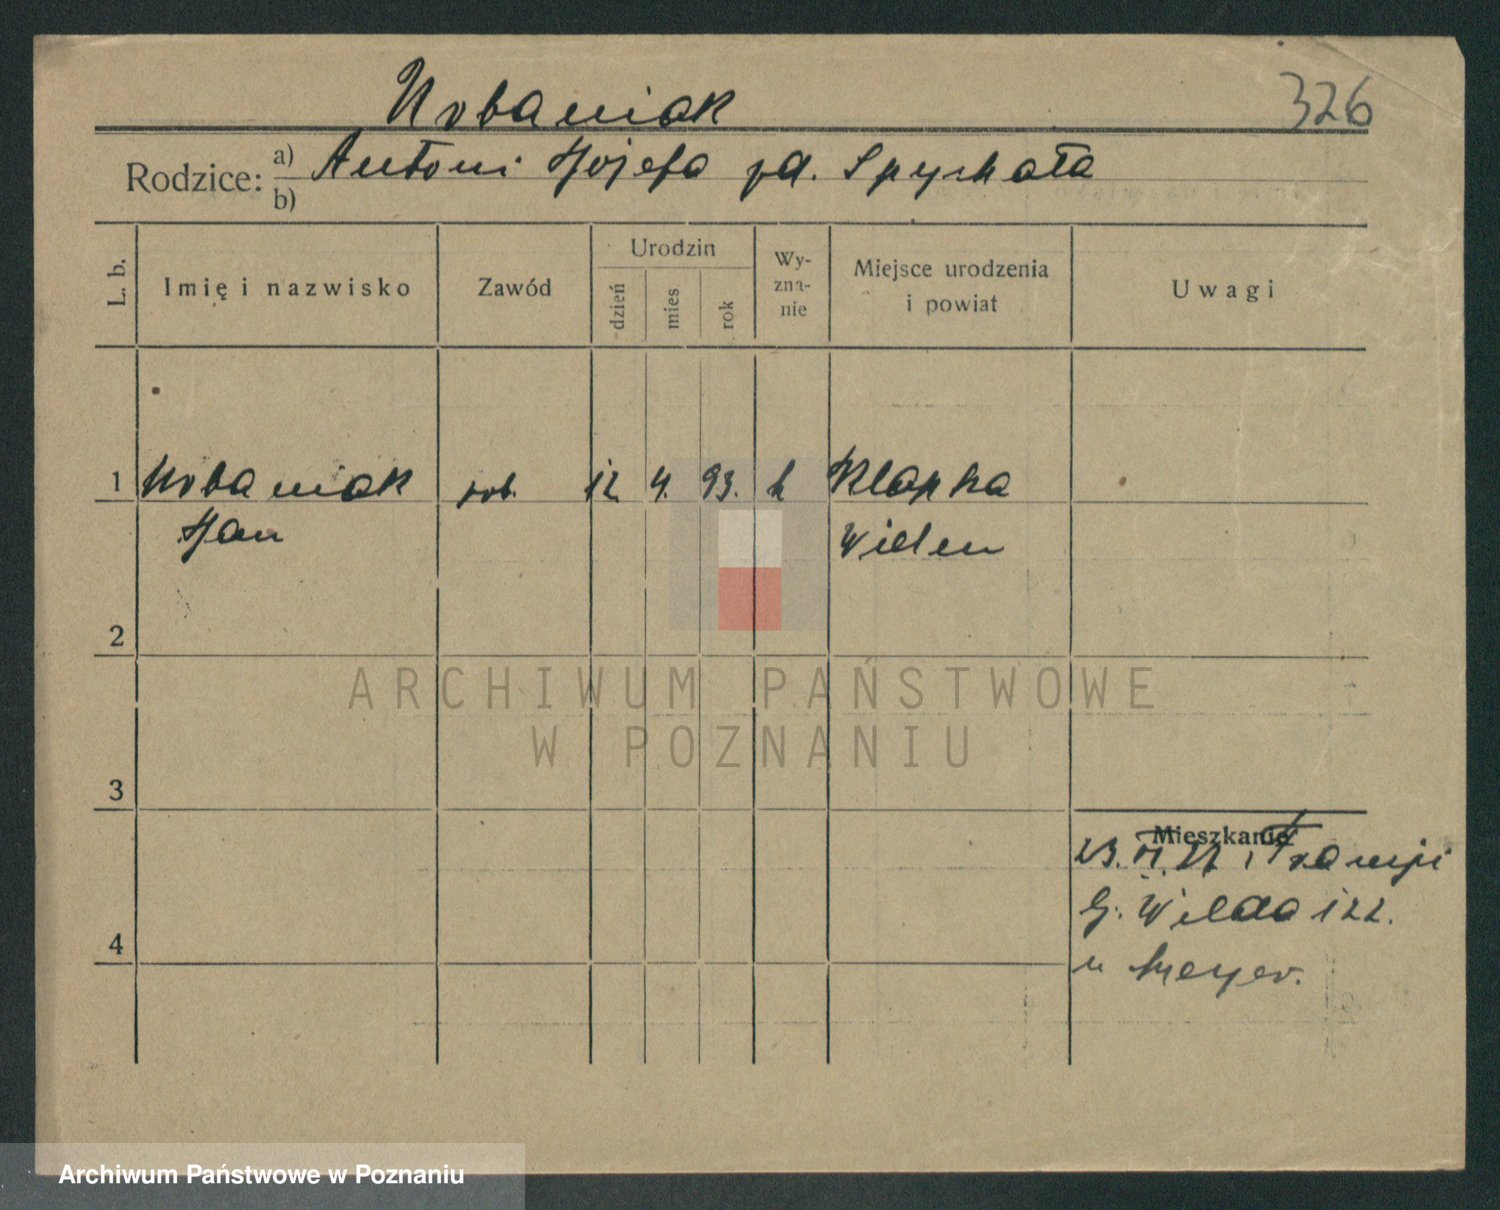 Urbaniak
326
Rodzice: a) Antoni Józefa zd. Spychała
b)
L. b.
Imię i nazwisko
Zawód
Urodzin
dzień
mies
rok
Wy-
zna-
nie
Miejsce urodzenia
i powiat
Uwagi
1 Urbaniak rob. 12 4. 93. k
Jan
Wielen
2
ARCHIWUM PAŃSTWOWE
W POZNANIU
3
Mieszkanie
23. VI. 27 Francji
G. Wilda 122.
u Meyer.
4
Archiwum Państwowe w Poznaniu